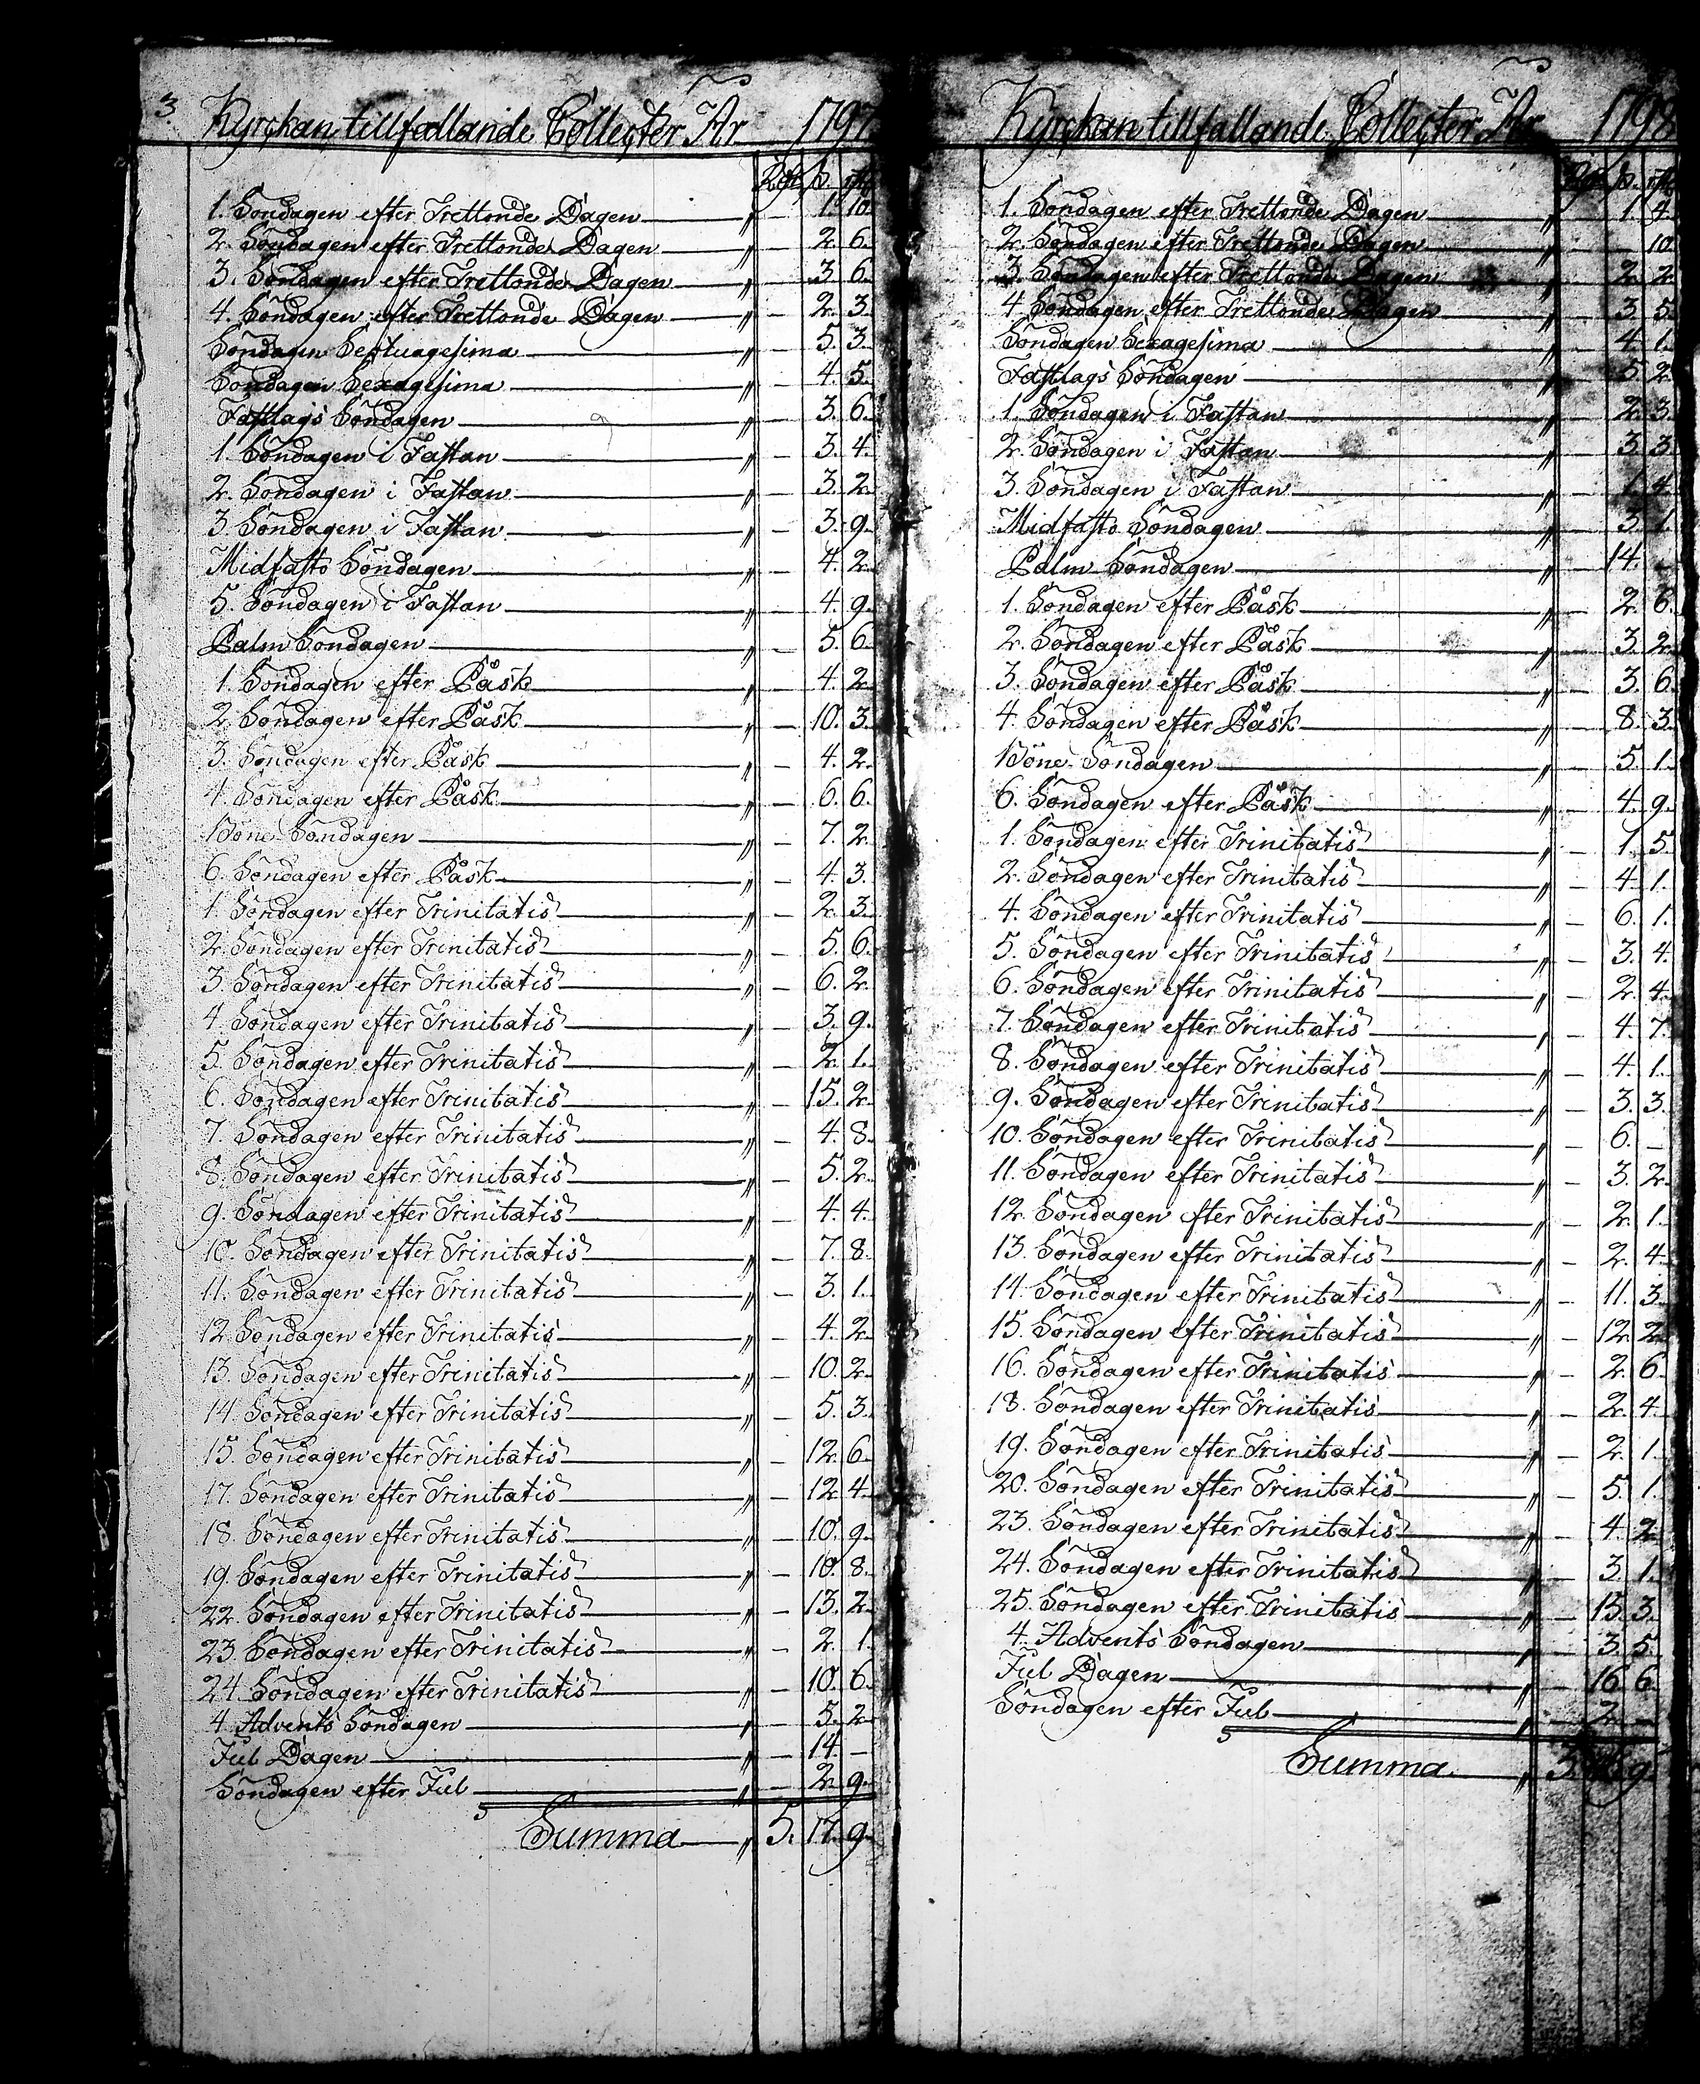 3. Kyrckan tillfallande Collecter År 1797
Rdr. s. rst.
1. Söndagen efter Trettonde Dagen — „ — 1. 10.
2. Söndagen efter Trettonde Dagen — „ — 2. 6.
3. Söndagen efter Trettonde Dagen — „ — 3. 6.
4. Söndagen efter Trettonde Dagen — „ — 2. 3.
Söndagen Septuagesima — „ — 5. 3.
Söndagen Sexagesima — „ — 4. 5.
Fastlags Söndagen — „ — 3. 6.
1. Söndagen i Fastan — „ — 3. 4.
2. Söndagen i Fastan — „ — 3. 2.
3. Söndagen i Fastan — „ — 3. 9.
Midfasto Söndagen — „ — 4. 2.
5. Söndagen i Fastan — „ — 4. 9.
Palm Söndagen — „ — 5. 6.
1. Söndagen efter Påsk — „ — 4. 2.
2. Söndagen efter Påsk — „ — 10. 3.
3. Söndagen efter Påsk — „ — 4. 2.
4. Söndagen efter Påsk — „ — 6. 6.
Böne Söndagen — „ — 7. 2.
6. Söndagen efter Påsk — „ — 4. 3.
1. Söndagen efter Trinitatis — „ — 2. 3.
2. Söndagen efter Trinitatis — „ — 5. 6.
3. Söndagen efter Trinitatis — „ — 6. 2.
4. Söndagen efter Trinitatis — „ — 3. 9.
5. Söndagen efter Trinitatis — „ — 2. 1.
6. Söndagen efter Trinitatis — „ — 15. 2.
7. Söndagen efter Trinitatis — „ — 4. 8.
8. Söndagen efter Trinitatis — „ — 5. 2.
9. Söndagen efter Trinitatis — „ — 4. 4.
10. Söndagen efter Trinitatis — „ — 7. 8.
11. Söndagen efter Trinitatis — „ — 3. 1.
12. Söndagen efter Trinitatis — „ — 4. 2.
13. Söndagen efter Trinitatis — „ — 10. 2.
14. Söndagen efter Trinitatis — „ — 5. 3.
15. Söndagen efter Trinitatis — „ — 12. 6.
17. Söndagen efter Trinitatis — „ — 12. 4.
18. Söndagen efter Trinitatis — „ — 10. 9.
19. Söndagen efter Trinitatis — „ — 10. 8.
22. Söndagen efter Trinitatis — „ — 13. 2.
23. Söndagen efter Trinitatis — „ — 2. 1.
24. Söndagen efter Trinitatis — „ — 10. 6.
4. Advents Söndagen — „ — 5. 2.
Jul Dagen — „ — 14. —
Söndagen efter Jul — „ — 2. 9.
Summa — „ 5. 17. 9.
Kyrckan tillfallande Collecter År 1798
s. rst.
1. Söndagen efter Trettonde Dagen — „ — 1. 4.
2. Söndagen efter Trettonde Dagen — „ — — 10.
3. Söndagen efter Trettonde Dagen — „ — 2. 2.
4. Söndagen efter Trettonde Dagen — „ — 3. 5.
Söndagen Sexagesima — „ — 4. 1.
Fastlags Söndagen — „ — 5. 2.
1. Söndagen i Fastan — „ — 2. 3.
2. Söndagen i Fastan — „ — 3. 3.
3. Söndagen i Fastan — „ — 1. 4.
Midfasto Söndagen — „ — 3. 1.
Palm Söndagen — „ — 14. —
1. Söndagen efter Påsk — „ — 2. 6.
2. Söndagen efter Påsk — „ — 3. 2.
3. Söndagen efter Påsk — „ — 3. 6.
4. Söndagen efter Påsk — „ — 8. 3.
Böne Söndagen — „ — 5. 1.
6. Söndagen efter Påsk — „ — 4. 9.
1. Söndagen efter Trinitatis — „ — 1. 5.
2. Söndagen efter Trinitatis — „ — 4. 1.
4. Söndagen efter Trinitatis — „ — 6. 1.
5. Söndagen efter Trinitatis — „ — 3. 4.
6. Söndagen efter Trinitatis — „ — 2. 4.
7. Söndagen efter Trinitatis — „ — 4. 7.
8. Söndagen efter Trinitatis — „ — 4. 1.
9. Söndagen efter Trinitatis — „ — 3. 3.
10. Söndagen efter Trinitatis — „ — 6. —
11. Söndagen efter Trinitatis — „ — 3. 2.
12. Söndagen efter Trinitatis — „ — 2. 1.
13. Söndagen efter Trinitatis — „ — 2. 4.
14. Söndagen efter Trinitatis — „ — 11. 3.
15. Söndagen efter Trinitatis — „ — 12. 2.
16. Söndagen efter Trinitatis — „ — 2. 6.
18. Söndagen efter Trinitatis — „ — 2. 4.
19. Söndagen efter Trinitatis — „ — 2. 1.
20. Söndagen efter Trinitatis — „ — 5. 1.
23. Söndagen efter Trinitatis — „ — 4. 2.
24. Söndagen efter Trinitatis — „ — 3. 1.
25. Söndagen efter Trinitatis — „ — 15. 3.
4. Advents Söndagen — „ — 3. 5.
Jul Dagen — „ — 16. 6.
Söndagen efter Jul — „ — 2. —
Summa — „ 3. 9.